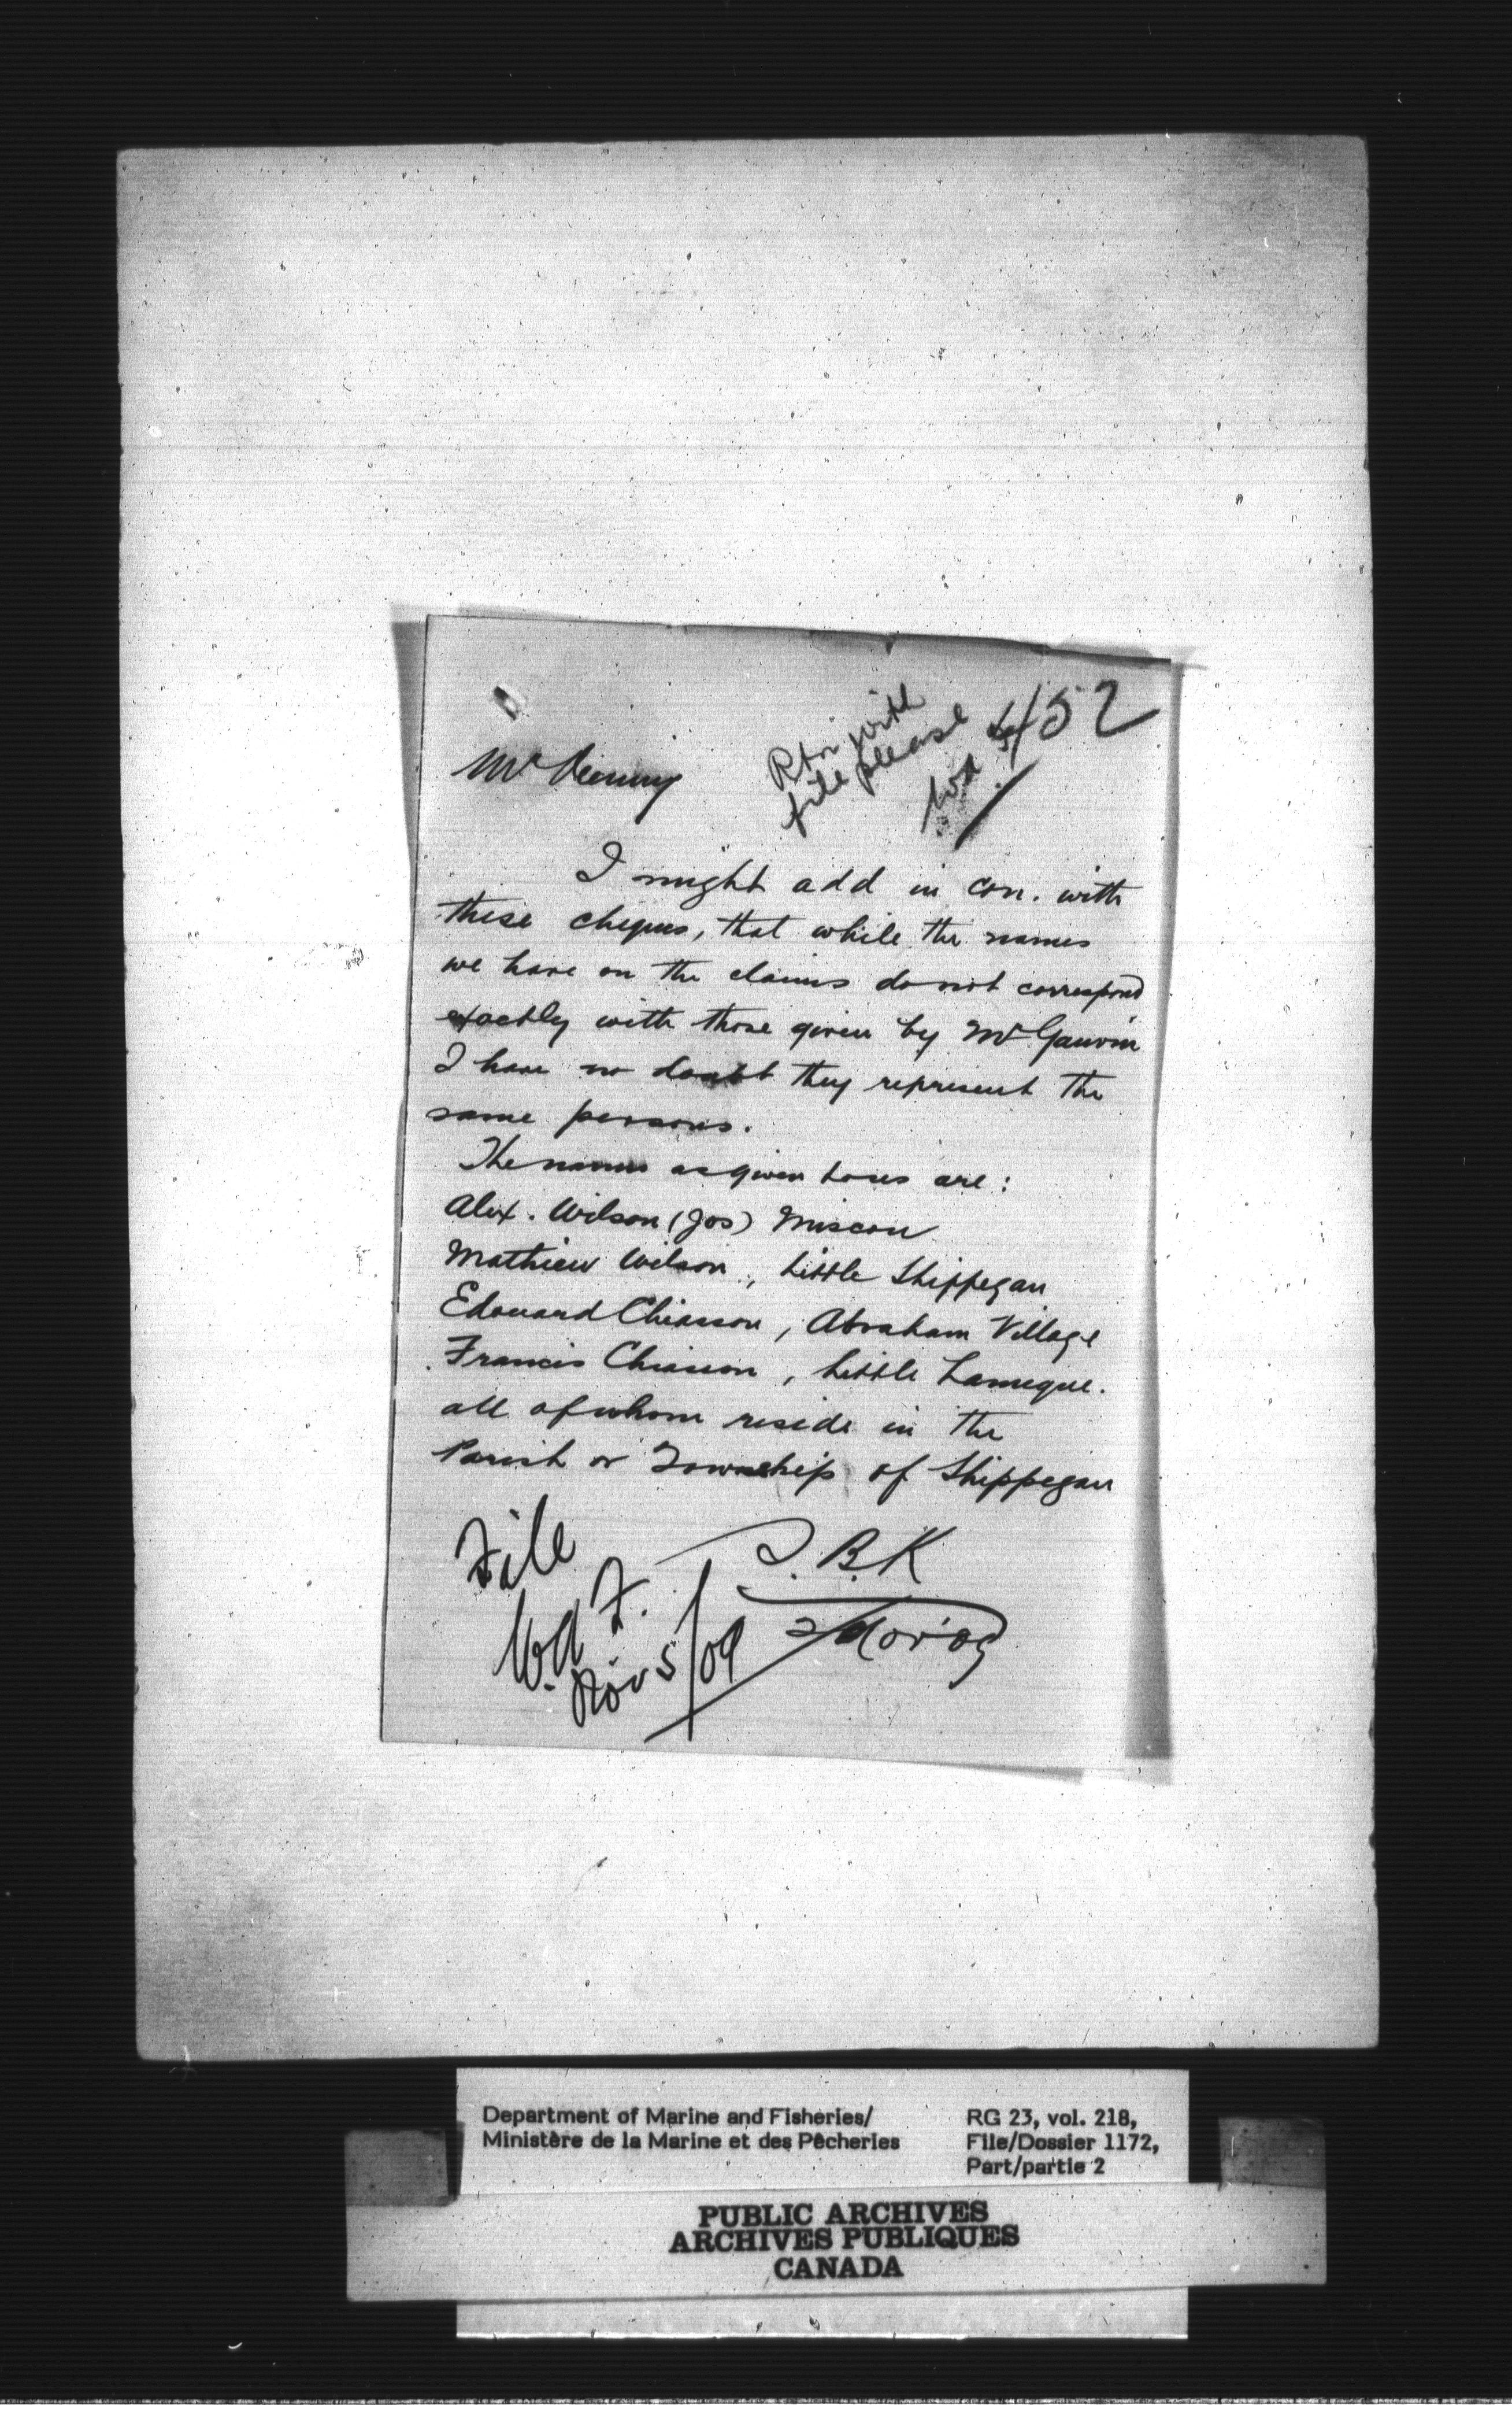 452
Rtn with
file please
Mr
I might add in con. with
these cheques, that while the names
we have on the claims do not correspond
exactly with those given by Mr Gauvin
I have no doubt they represent the
same persons.
The names as given are:
Alex. Wilson (Jos) Miscou
Mathieu Wilson, Little Shippegan
Edouard Chiasson, Abraham Village
Francis Chiasson, Little Lameque.
all of whom reside in the
Parish or Township of Shippegan
File
B.K
Nov 5/09
2 Nov '09
Department of Marine and Fisheries/
Ministère de la Marine et des Pêcheries
RG 23, vol. 218,
File/Dossier 1172,
Part/partie 2
PUBLIC ARCHIVES
ARCHIVES PUBLIQUES
CANADA